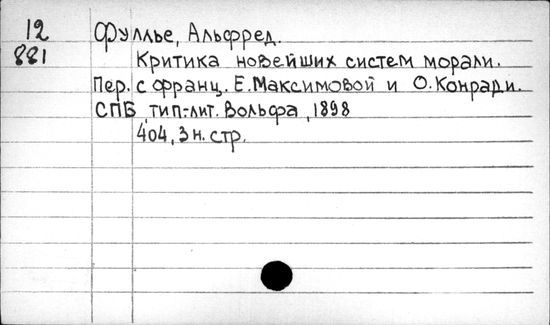 12 Фуллье, Альфред.
881 Критика новейших систем морали.
Пер. с франц. Е. Максимовой и О. Конради.
СПБ, тип.-лит. Вольфа, 1898
404, 3 н. стр.